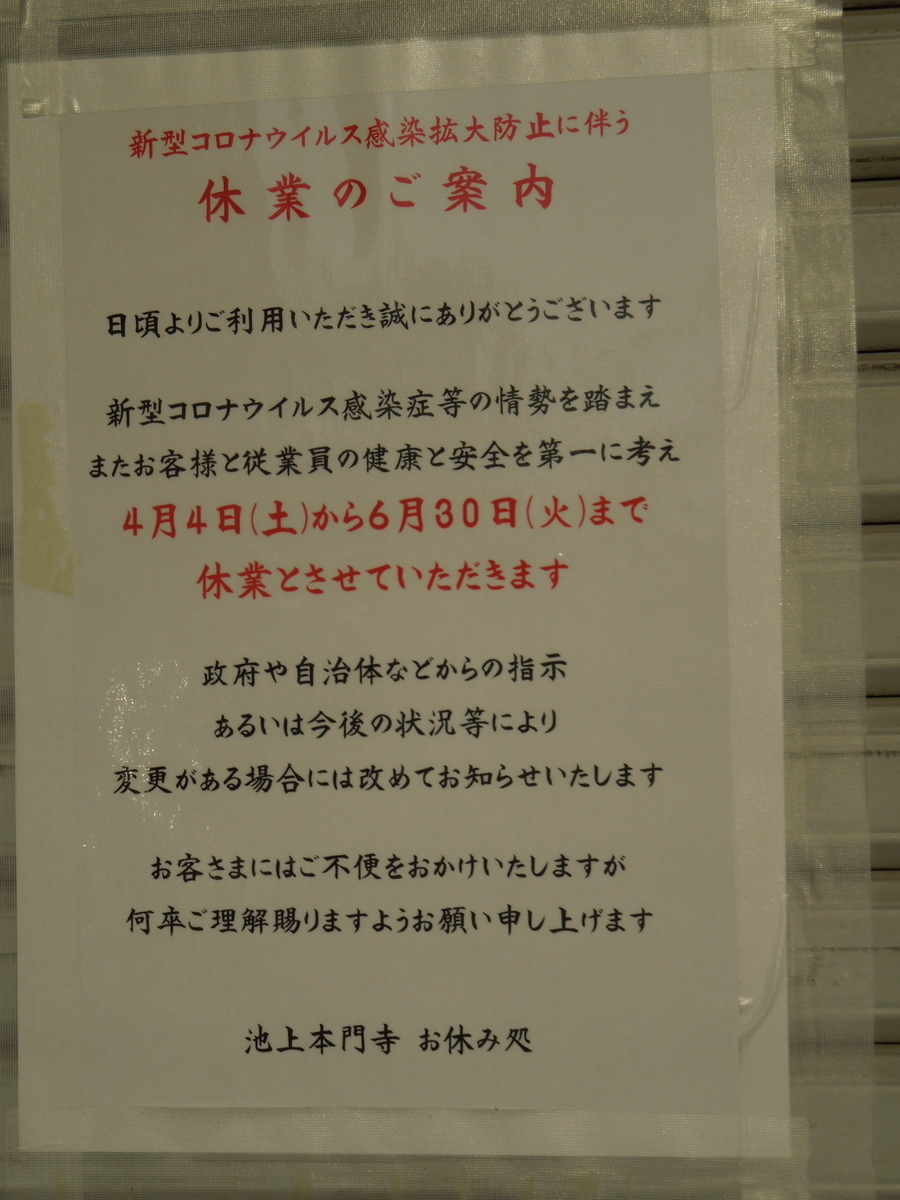 新型コロナウイルス感染拡大防止に伴う
休業のご案内
日頃よりご利用いただき誠にありがとうございます
新型コロナウイルス感染症等の情勢を踏まえ
またお客様と従業員の健康と安全を第一に考え
4月4日(土)から6月30日(火)まで
休業とさせていただきます
政府や自治体などからの指示
あるいは今後の状況等により
変更がある場合には改めてお知らせいたします
お客さまにはご不便をおかけいたしますが
何卒ご理解賜りますようお願い申し上げます
池上本門寺 お休み処